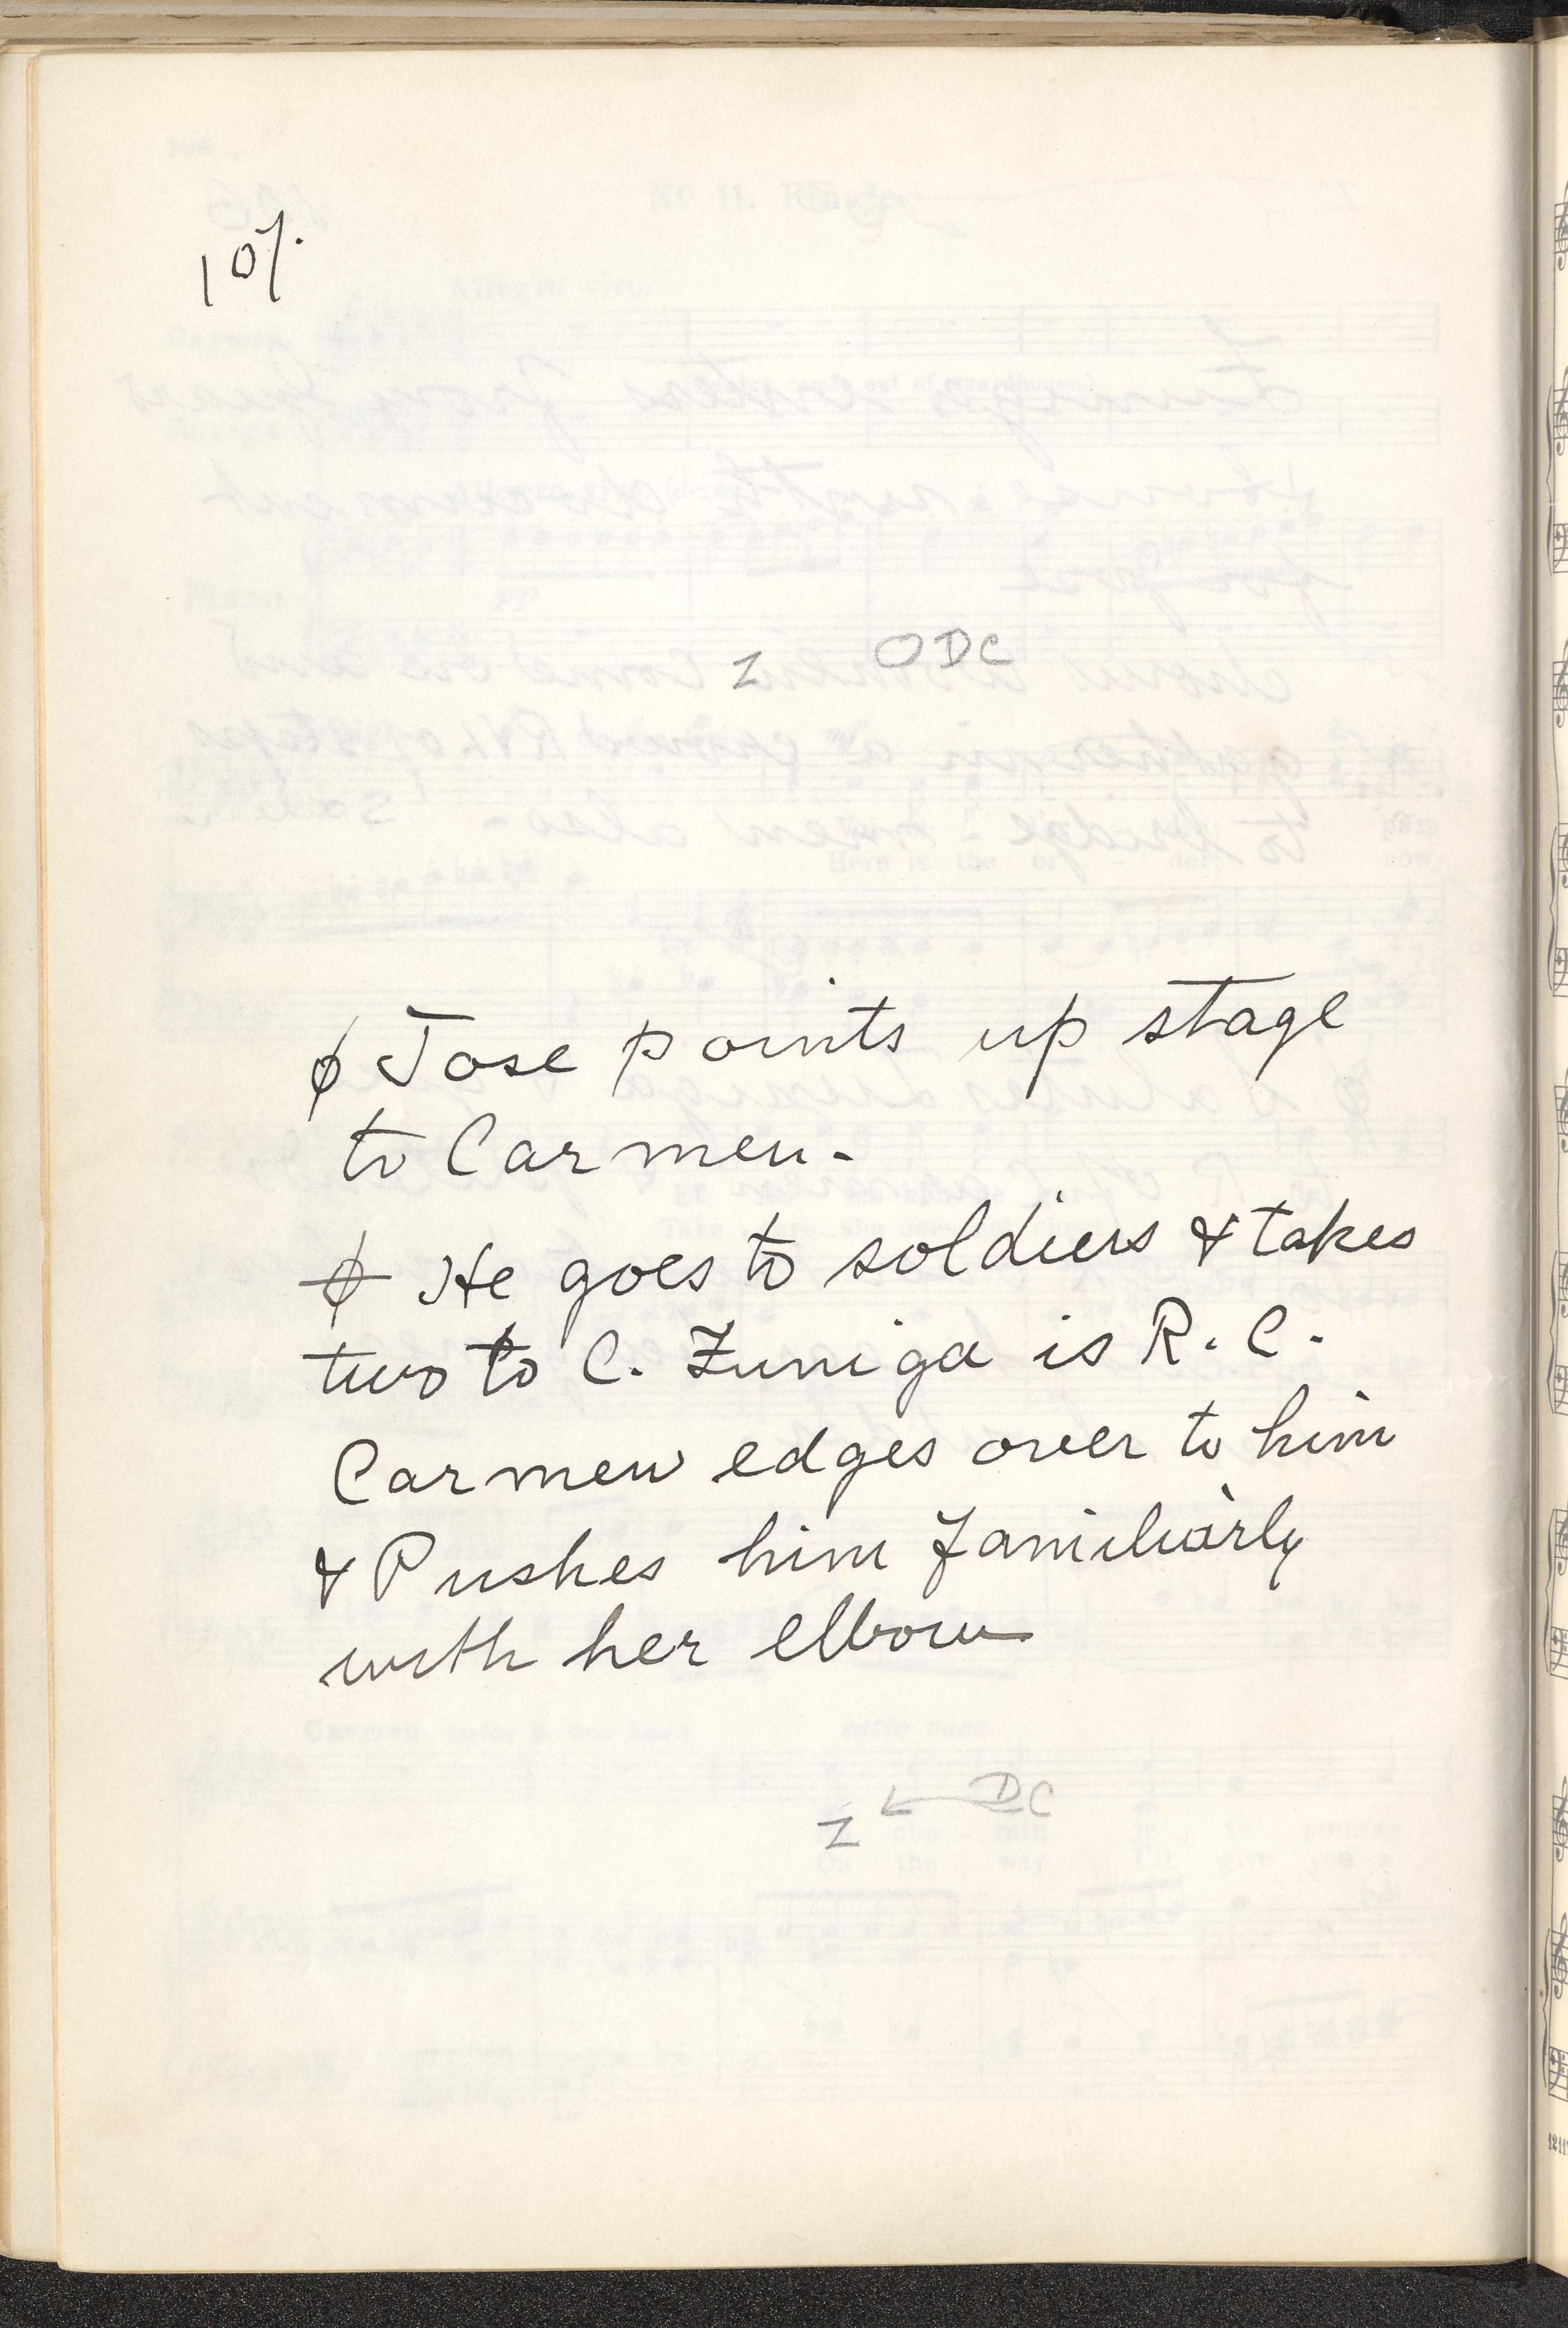 107.
Z ODC
ϕ Jose points up stage
to Carmen.
ϕ He goes to soldiers & takes
two to C. Zuniga is R. C.
Carmen edges over to him
& Pushes him familiarly
with her elbow
Z ← DC